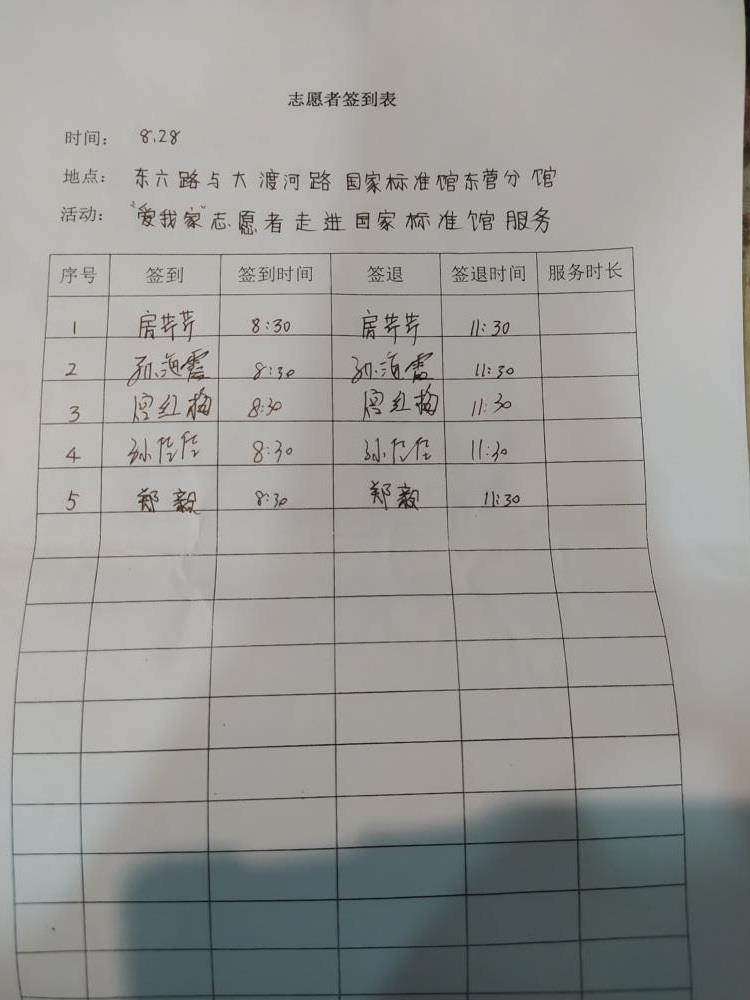 志愿者签到表
时间： 8.28
地点： 东六路与大渡河路国家标准馆东营分馆
活动： "爱我家"志愿者走进国家标准馆服务
序号 签到 签到时间 签退 签退时间 服务时长
1 房芹芹 8:30 房芹芹 11:30
2 孙海霞 8:30 孙海霞 11:30
3 红梅 8:30 红梅 11:30
4 孙 8:30 孙 11:30
5 郑毅 8:30 郑毅 11:30